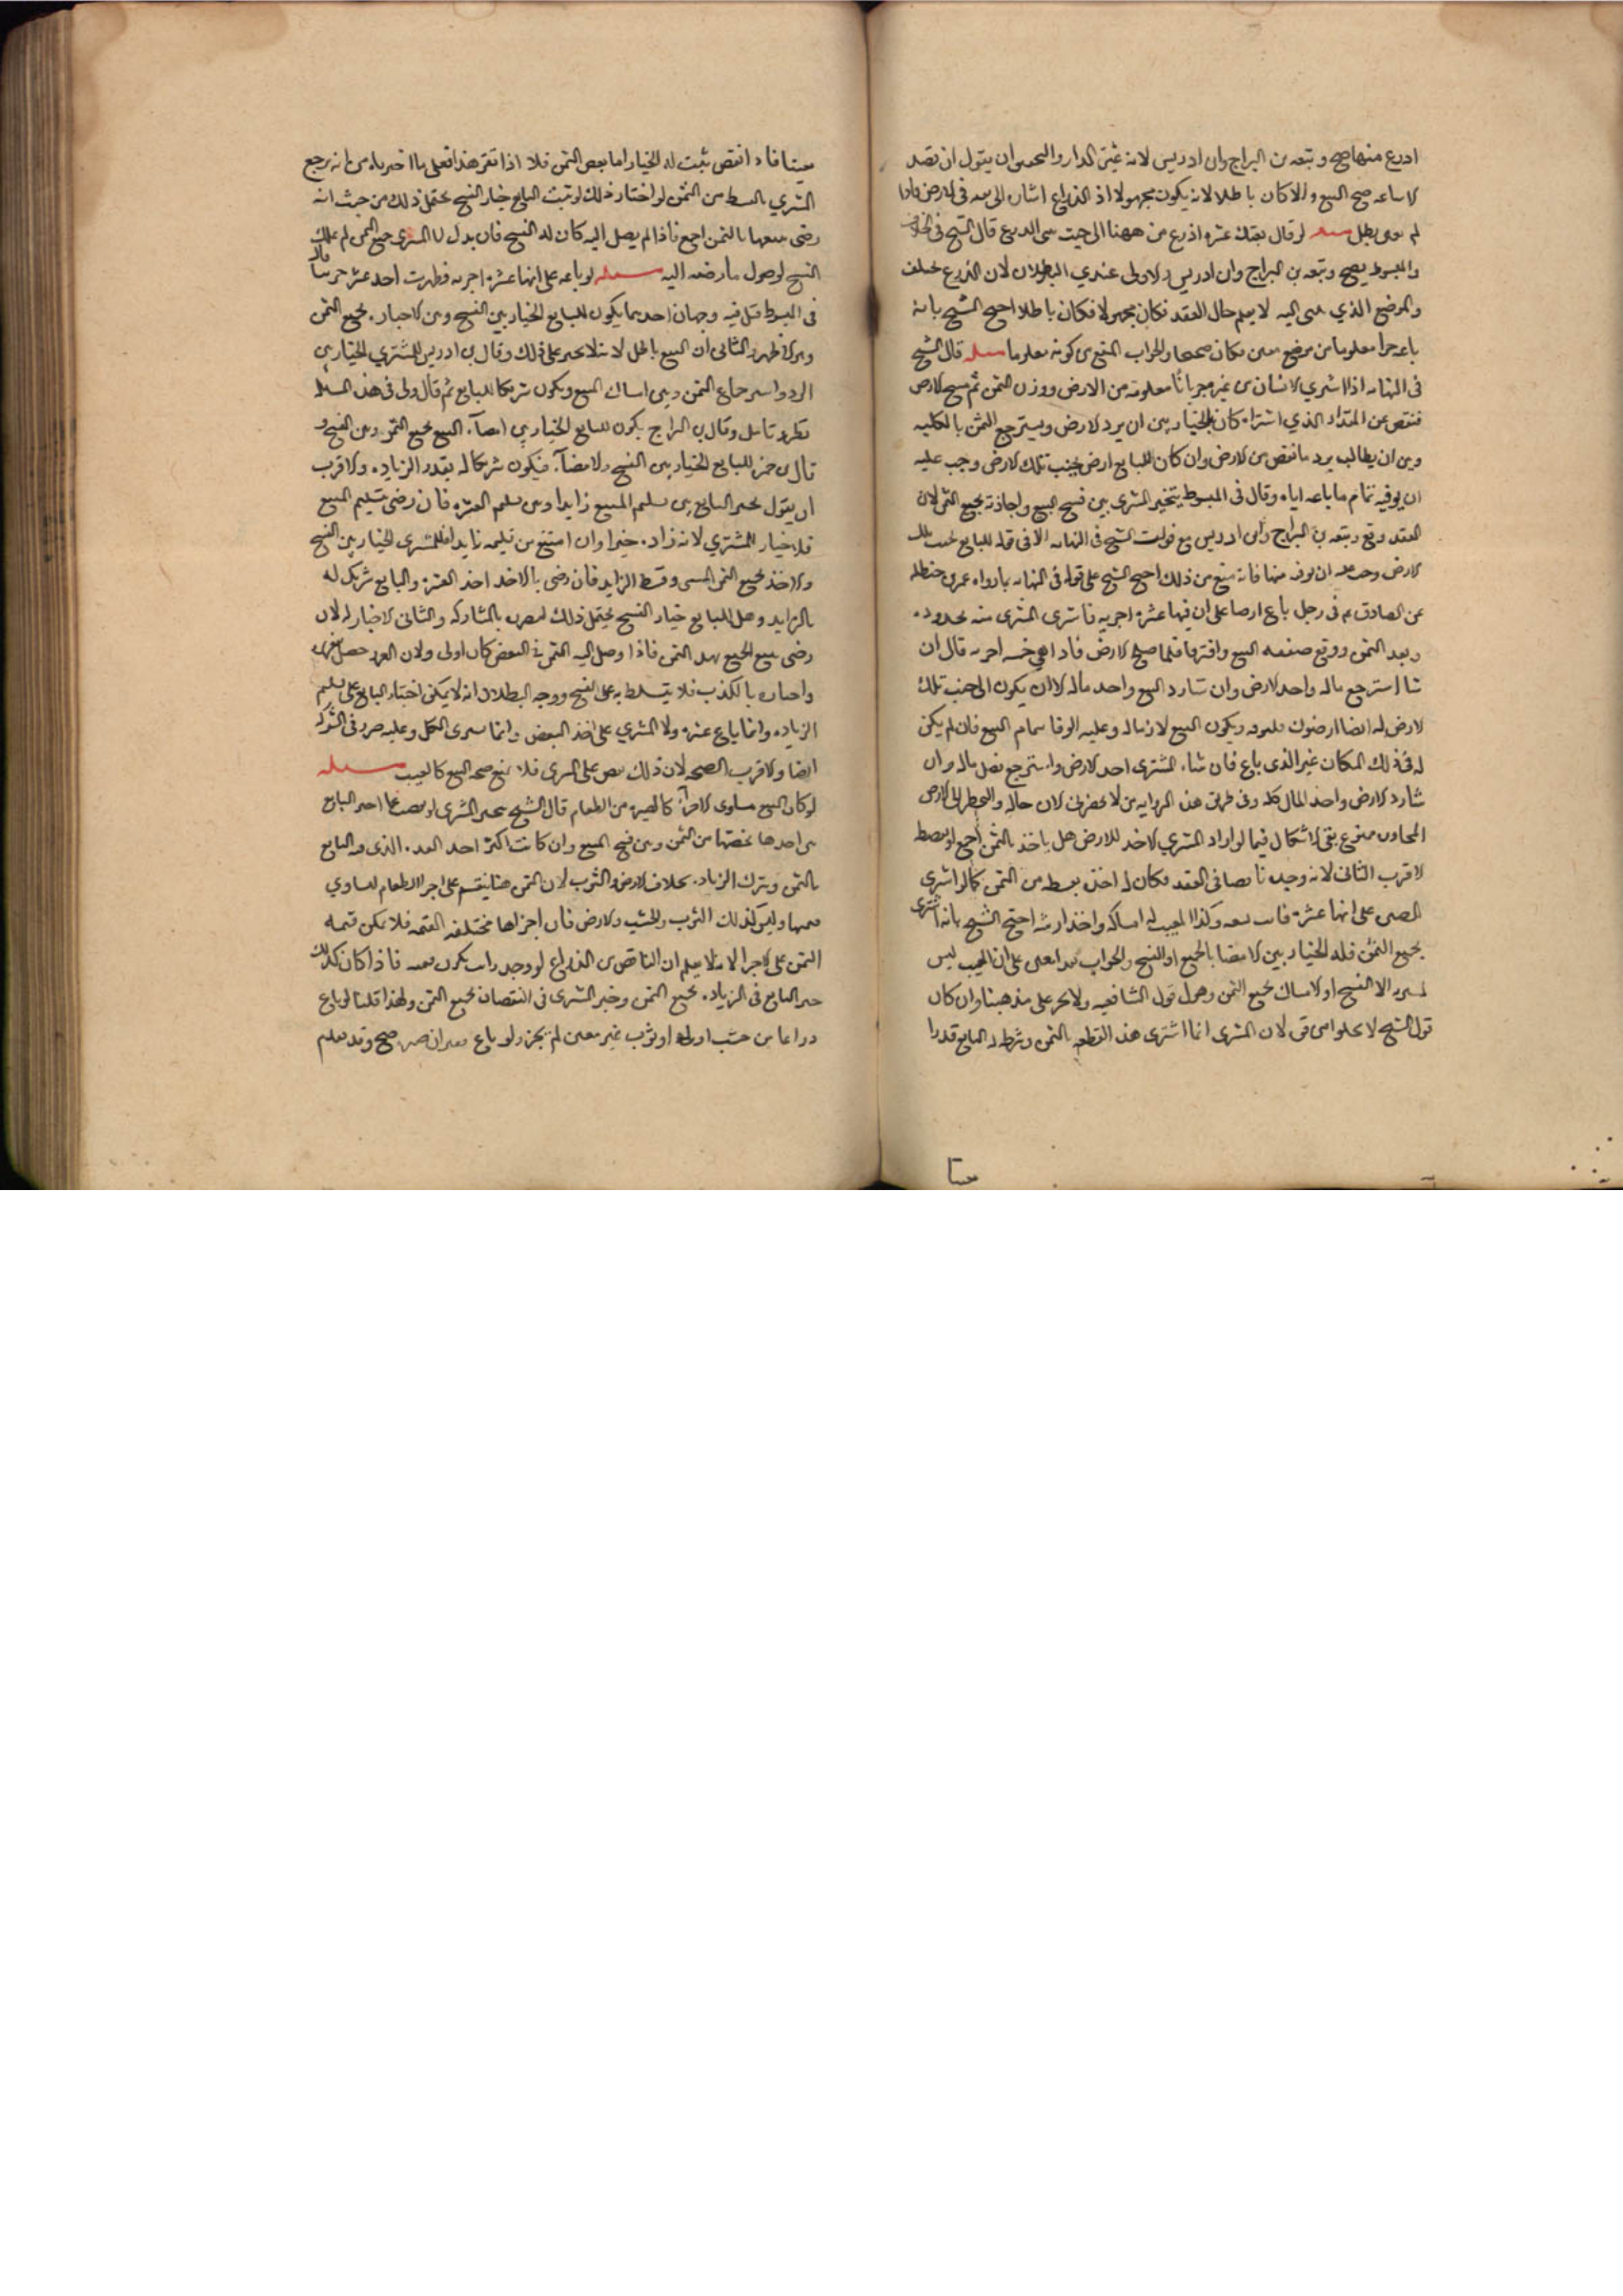 اذرع منها صح وتبعه بن البراج وابن ادريس لانه عين الدار والتحقيق ان يقول ان قصد
الاشاعه صح البيع والا كان باطلا لانه يكون مجهولا اذ الذراع اشاره الى بقعه في الارض فاذا
لم يعين بطل مسله لو قال بعتك عشره اذرع من ههنا الى حيث ينتهي الذرع قال الشيخ في الخلاف
والمبسوط يصح وتبعه بن البراج وابن ادريس والاولى عندي البطلان لان الذرع يختلف
والموضع الذي ينتهي اليه لا يعلم حال العقد فكان مجهولا فكان باطلا احتج الشيخ بانه
باعه جزا معلوما من موضع معين فكان صحيحا والجواب المنع من كونه معلوما مسله قال الشيخ
في النهايه اذا اشترى الانسان من غيره جربانا معلومه من الارض ووزن الثمن ثم مسح الارض
فنقص عن المقدار الذي اشتراه كان بالخيار بين ان يرد الارض ويسترجع الثمن بالكليه
وبين ان يطالب برد ما نقص من الارض وان كان للبايع ارض بجنب تلك الارض وجب عليه
ان يوفيه تمام ما باعه اياه وقال في المبسوط يتخير المشتري بين فسخ البيع واجازته بجميع الثمن لان
العقد وقع وتبعه بن البراج وابن ادريس مع فوات الشيخ في النهايه الا في قوله للبايع بجنب تلك
الارض وجب عليه ان يوفيه منها فانه منع من ذلك احتج الشيخ على قوله في النهايه بما رواه عمر بن حنظله
عن الصادق عم في رجل باع ارضا على ان فيها عشره اجربه فاشترى المشتري منه بحدوده
ونقد الثمن ووقع صفقه البيع وافترقا فلما مسح الارض فاذا هي خمسه اجربه قال ان
شا استرجع ماله واخذ الارض وان شا رد البيع واخذ ماله الا ان يكون الى جنب تلك
الارض له ايضا ارضون فليوفه ويكون البيع لازما له وعليه الوفا بتمام البيع فان لم يكن
له في ذلك المكان غير الذي باع فان شا المشتري اخذ الارض واسترجع فضل ماله وان
شا رد الارض واخذ المال كله وفي طريق هذه الروايه من لا يحضرني الان حاله والتخطي الى الارض
المجاوره ممنوع بقي الاشكال فيما لو اراد المشتري الاخذ للارض هل ياخذ بالثمن اجمع او بقسطه
الاقرب الثاني لانه وجده ناقصا في العقد فكان له اخذه بقسطه من الثمن كما لو اشترى
الصبره على انها عشره فبانت تسعه وكذا المعيب له امساكه واخذ ارشه احتج الشيخ بانه اشترى
بجميع الثمن فله الخيار بين الامضا بالجميع او الفسخ والجواب هذا يبتني على ان المعيب ليس
لمشتريه الا الفسخ او الامساك بجميع الثمن وهو قول الشافعيه ولا يجري على مذهبنا وان كان
قول الشيخ لا يخلو من قوه لان المشتري انما اشترى هذه القطعه بالثمن وشرط له البايع قدرا
معينا
معينا فاذا انتقص ثبت له الخيار اما بعض الثمن فلا اذا تقرر هذا فعلى ما اخترناه من انه يرجع
المشتري بالقسط من الثمن لو اختار ذلك لو ثبت البايع خيار الفسخ يحتمل ذلك من حيث انه
رضي ببيعها بالثمن اجمع فاذا لم يصل اليه كان له الفسخ فان بذل له المشتري جميع الثمن لم يملك
الفسخ لوصول ما رضيه اليه مسله لو باعه على انها عشره اجربه فظهرت احد عشر جريبا قال
في المبسوط قيل فيه وجهان احدهما يكون للبايع الخيار بين الفسخ وبين الاجازه بجميع الثمن
وهو الاظهر والثاني ان البيع باطل لانه لا يجبر على ذلك وقال بن ادريس للمشتري الخيار بين
الرد واسترجاع الثمن وبين امساك المبيع ويكون شريكا للبايع ثم قال ولي في هذه المسله
نظر وتامل وقال بن البراج يكون للبايع الخيار بين امضآء البيع بجميع الثمن وبين الفسخ و
قال بن حمزه للبايع الخيار بين الفسخ والامضآء فيكون شريكا له بقدر الزياده والاقرب
ان يقول يخير البايع بين تسليم المبيع زايدا وبين تسليم العشره فان رضي بتسليم الجميع
فلا خيار للمشتري لانه زاده خيرا وان امتنع من تسليمه زايدا فللمشتري الخيار بين الفسخ
والاخذ بجميع الثمن المسمى وقسط الزايد فان رضي بالاخذ اخذ العشره والبايع شريك له
بالزايد وهل للبايع خيار الفسخ يحتمل ذلك لتضرره بالمشاركه والثاني لا خيار له لان
رضي ببيع الجميع بهذا الثمن فاذا وصل اليه الثمن في البعض كان اولى ولان الضرر حصل بتغريره
واخباره بالكذب فلا يتسلط به على الفسخ ووجه البطلان انه لا يمكن اجبار البايع على تسليم
الزياده وانما باع عشره ولا المشتري على اخذ البعض وانما اشترى الكل وعليه ضرر في الشركه
ايضا والاقرب الصحه لان ذلك نقص على المشتري فلا يمنع صحه البيع كالعيب مسله
لو كان المبيع متساوي الاجزآء كالصبره من الطعام قال الشيخ يتخير المشتري لو نقصت عما اخبر البايع
بين اخذها بحصتها من الثمن وبين فسخ المبيع وان كانت اكثر اخذ القدر الذي وقع البيع
بالثمن وترك الزياده بخلاف الارض والثوب لان الثمن هنا ينقسم على اجزا الطعام لتساوي
قيمتها وليس كذلك الثوب والخشب والارض فان اجزاها مختلفه القيمه فلا يمكن قسمه
الثمن على الاجزا لانه لا يعلم ان الناقص من الذراع لو وجد بكم يكون قيمته فاذا كان كذلك
خير البايع في الزياده بجميع الثمن وخير المشتري في النقصان بجميع الثمن ولهذا قلنا لو باع
ذراعا من خشب او دار او ثوب غير معين لم يجز ولو باع قفيزا من صبره صح وقد تعلم